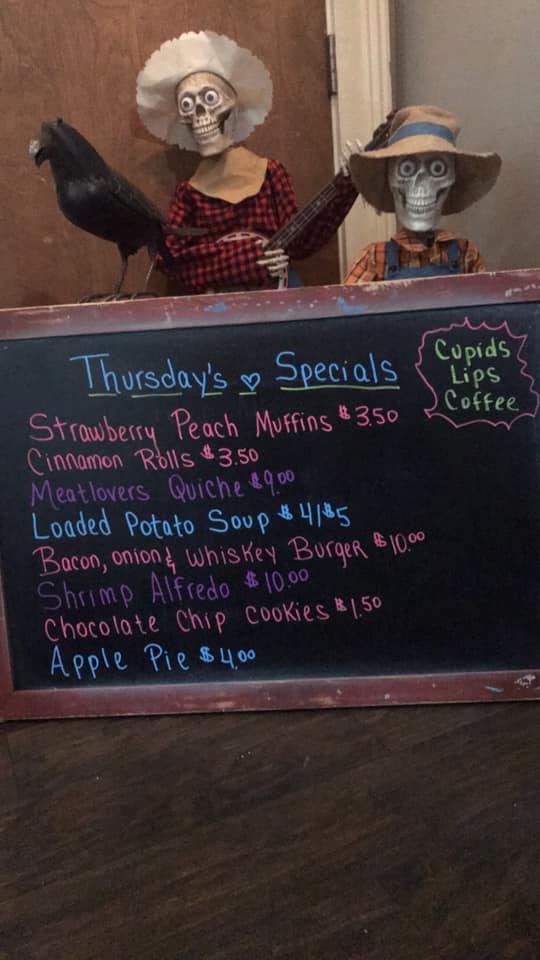 Thursday's ♥ Specials
Cupids
Lips
Coffee
Strawberry Peach Muffins $3.50
Cinnamon Rolls $3.50
Meatlovers Quiche $9.00
Loaded Potato Soup $4/$5
Bacon, onion & Whiskey Burger $10.00
Shrimp Alfredo $10.00
Chocolate Chip Cookies $1.50
Apple Pie $4.00